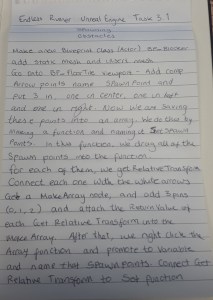 Endless Runner Unreal Engine Task 3.1
Spawning
Obstacles
Make a new Blueprint Class (Actor) BP_Blocker
add static mesh and insert mesh
Go into BP_FloorTile viewport - Add comp
Arrow points name SpawnPoint and
Put 3 in. one in Center, one in Left
and one in right. Now we are saving
these points into an array. We do this by
making a function and naming it Set Spawn
Points. In the function, we drag all of the
Spawn points into the function
for each of them, we get Relative Transform
Connect each one with the white arrows
Grab a Make Array node, and add 3 pins
(0, 1, 2) and attach the Return Value of
each Get Relative Transform into the
Make Array. After that, we right click the
Array function and promote to Variable
and name that SpawnPoints. Connect Get
Relative Transform to Set function